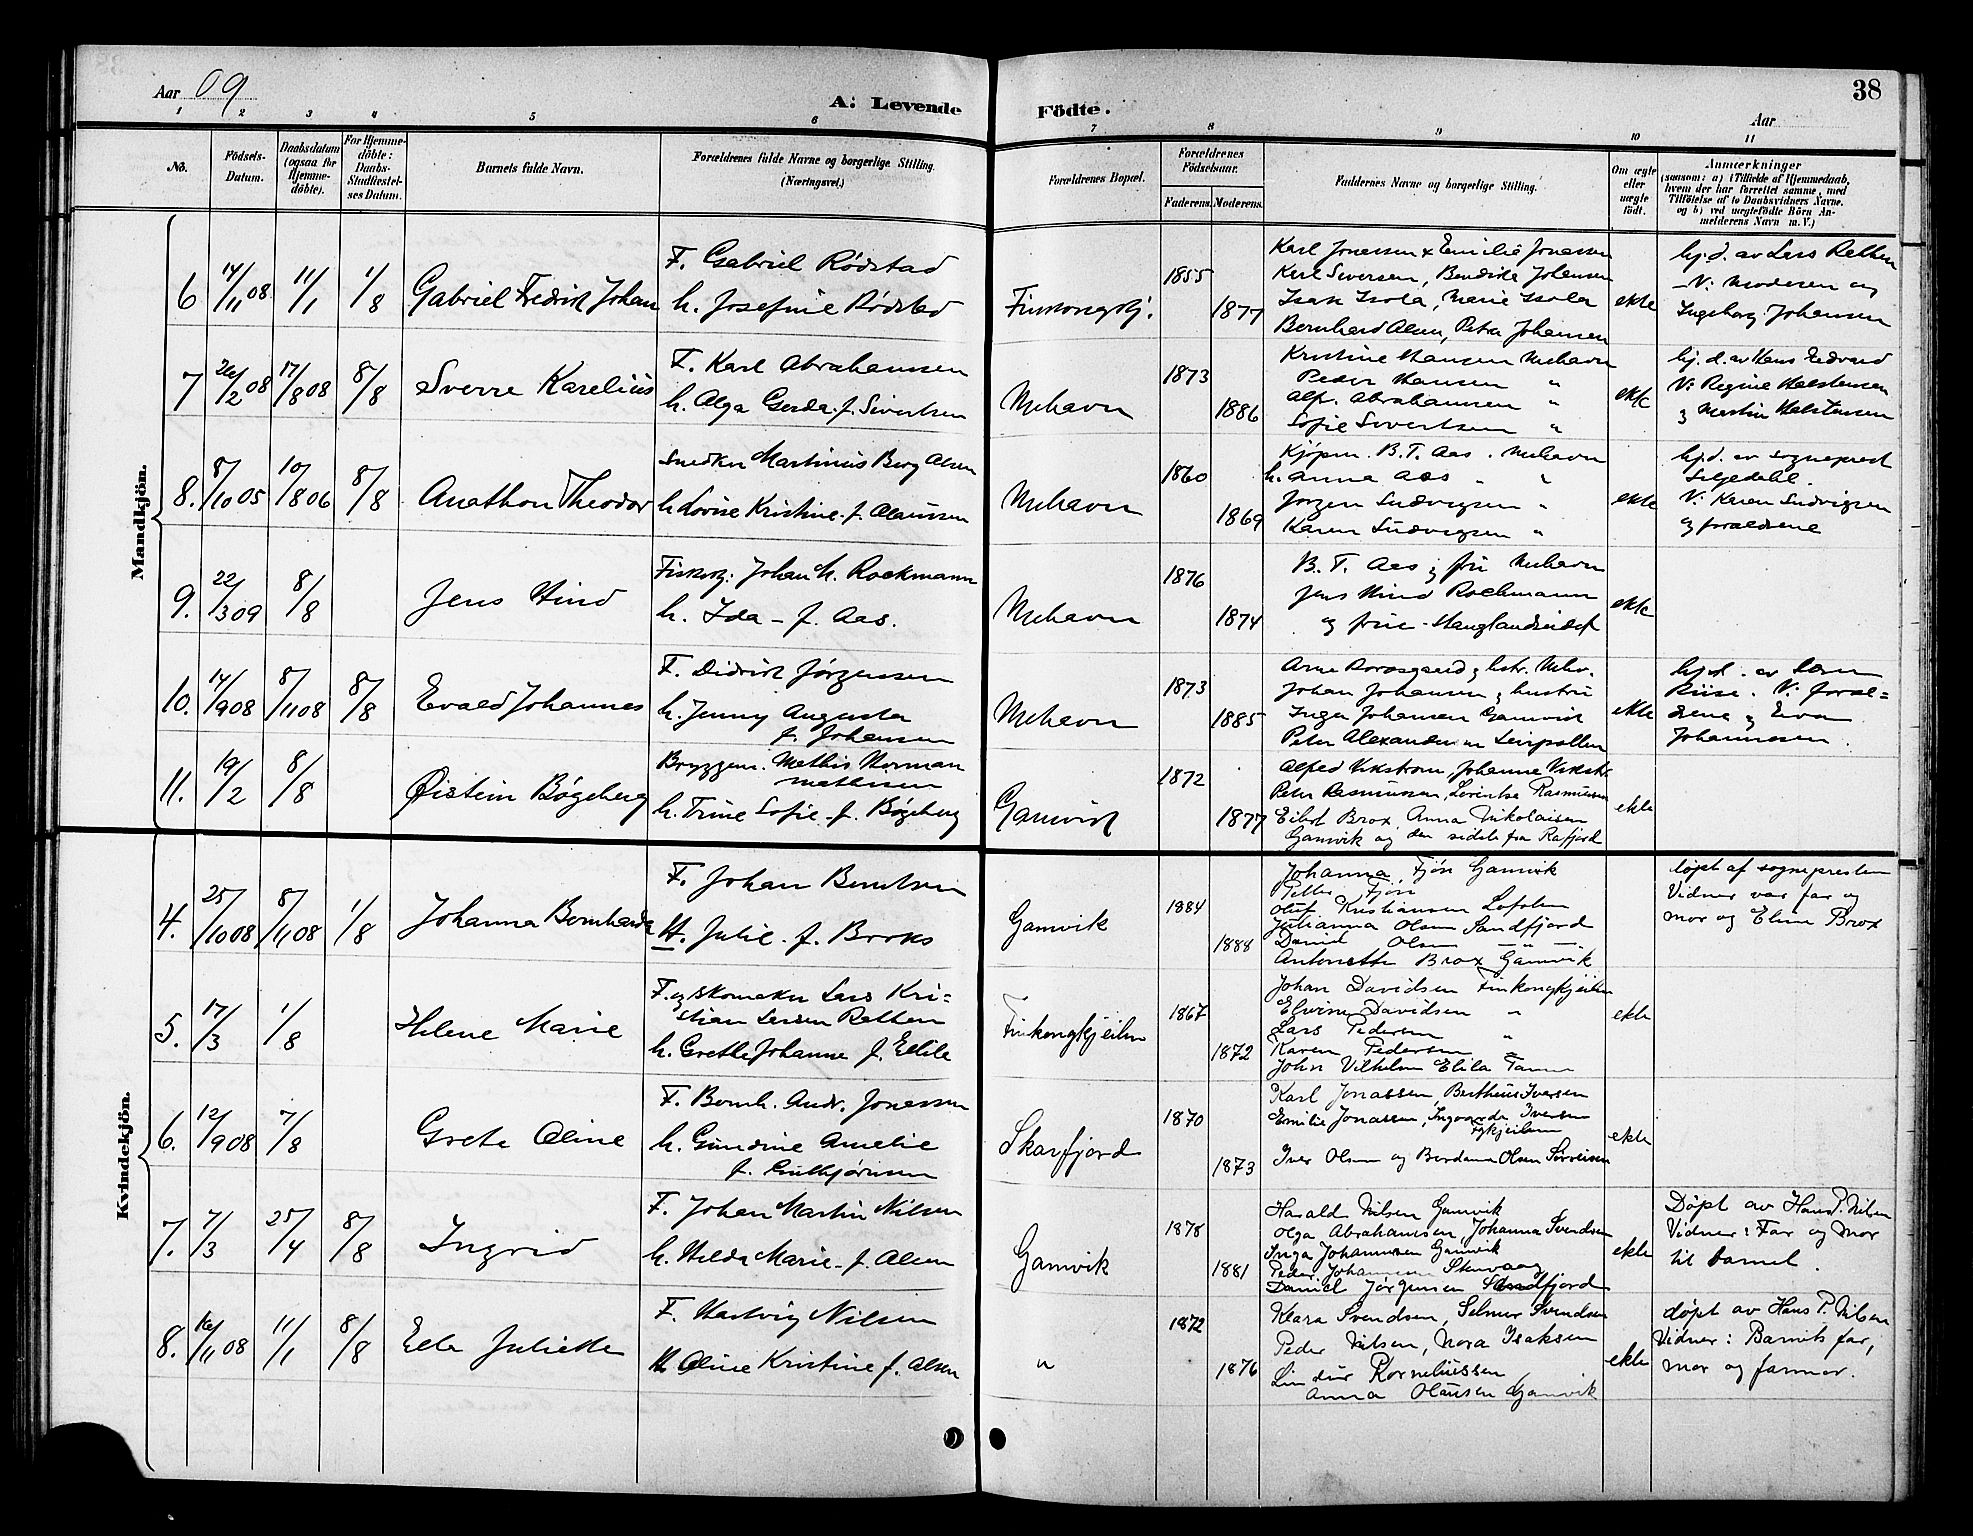 Aar 09
A. Levende
Födte.
38
Aar
1 2 3 4 5 6 7 8 9 10 11
No.
Födsels-Datum.
Daabsdatum (ogsaa for Hjemme-döbte).
For Hjemme-döbte: Daabs-Stadfæstel-ses Datum.
Barnets fulde Navn.
Forældrenes fulde Navne og borgerlige Stilling. (Næringsvei.)
Forældrenes Bopæl.
Forældrenes Födselsaar.
Faderens. Moderens.
Faddernes Navne og borgerlige Stilling.
Om ægte eller uægte födt.
Anmærkninger
(saasom: a) i Tilfælde af Hjemmedaab,
hvem der har forrettet samme, med
Tilföielse af to Daabsvidners Navne.
og b) ved uægtefödte Börn An-
melderens Navn m. V.)
Mandkjön.
6 14/11 08 11/1 1/8 Gabriel Fredrik Johan
F. Gabriel Rödstad
h. Josefine Rödstad
Finkongkj.
1855
1877
Karl Jonassen & Emilie Jonassen
Karl Seversen, Bendikte Johansen
Isak Isola, Marie Isola
Bernhard Alsen, Petra Johansen
ekte
hj.d. av Lars Retten
- V: Moderen og
Ingeborg Johansen
7 26/2 08 17/8 08 8/8 Sverre Karelius
F. Karl Abrahamsen
h. Alga Gerda f. Sivertsen
Mehavn
1873
1886
Kristine Hansen Mehavn
Peder Hansen "
Alf. Abrahamsen "
Sofie Sivertsen "
ekte
hj. d. av Hans Edvard
V: Regine Halstensen
og Martin Halstensen
8. 8/10 05 10/8 06 8/8 Anathon Theodor
Snedker Martinius Berg Alsen
h. Lovise Kristine f. Olaussen
Mehavn
1860
1869
Kjöpm. B. T. Aas. Mehavn
h. Anna Aas " "
Jörgen Ludvigsen "
Karen Ludvigsen "
ekte
hj.d. av sogneprest
Seljedahl.
V: Karen Ludvigsen
og forældrene
9. 22/3 09 8/8 Jens Hind
Johan M. Rockmann
h. Ida - f. Aas.
Mehavn
1876
1874
B. T. Aas og fru Mehavn
Jens Hind Rockmann
og frue
ekte
10. 14/9 08 8/11 08 8/8 Evald Johannes
F. Didrik Jörgensen
h. Jenny Augusta
f. Johansen
Mehavn
1873
1885
Johan Johansen og hustru
Inga Johansen Gamvik
Peter Alexandersen Leirpollen
ekte
hj.d. av
V: foræl=
drene og
Johannesen.
11. 19/2 8/8 Øistein Bögeberg
Bryggem. Mathis Norman
Mathisen
h. Trine Sofie f. Bögeberg
Gamvik
1872
1877
Alfred Vikström, Johanne Vikstr.
Petra Rasmussen, Lorentse Rasmussen
Eilert Brox, Anna Nikolaisen
Gamvik og den sidste fra Rafjord
ekte
Kvindekjön.
4. 25/10 08 8/11 08 1/8 Johanna Bernharda
F. Johan Berntsen
H. Julie f. Broks
Gamvik
1884
1888
Johanna Fjön Gamvik
Petter Fjön
Oluf Kristiansen Lofoten
Julianna Olsen Sandfjord
Daniel Olsen — " —
Antonette Brox Gamvik
döpt af sognepresten
Vidner var far og
mor og Eline Brox
5. 17/3 1/8 Helene Marie
F. og skomaker Lars Kri=
stian Larsen Retten
h. Grethe Johanne f. Elila
Finkongkjeilen
1867
1872
Johan Davidsen Finkongkjeilen
Elvine Davidsen "
Lars Pedersen "
Karen Pedersen "
John Vilhelm Elila Tanen
ekte
6. 12/9 08 7/8 Grete Oline
F. Bernh. Andr. Jonassen
h. Gundine Amelie
f. Guttjörnsen
Skarfjord
1870
1873
Karl Jonassen, Berthius Iversen
Emilie Jonassen, Ingvarda Iversen
Fkjeilen
Iver Olsen og Berdana Olsen Sörveisen
ekte
7. 7/3 25/4 8/8 Ingrid
F. Johan Martin Nilsen
h. Hilda Marie f. Alsen
Gamvik
1878
1881
Harald Nilsen Gamvik
Olga Abrahamsen, Johanna Svendsen
Inga Johannesen Gamvik
Peder Johannesen Skervaag
Daniel Jörgensen Sandfjord
ekte
Döpt av Hans P. Nilsen
Vidner: Far og mor
til barnet.
8. 16/11 08 11/1 8/8 Ella Juliette
F. Hartvig Nilsen
H Oline Kristine f. Alsen
"
1872
1876
Klara Svendsen, Selmer Svendsen
Peder Nilsen, Nora Isaksen
Lindur Korneliussen,
Anna Olausen Gamvik
ekte
döpt av Hans P. Nilsen
Vidner: Barnets far,
mor og farmor.